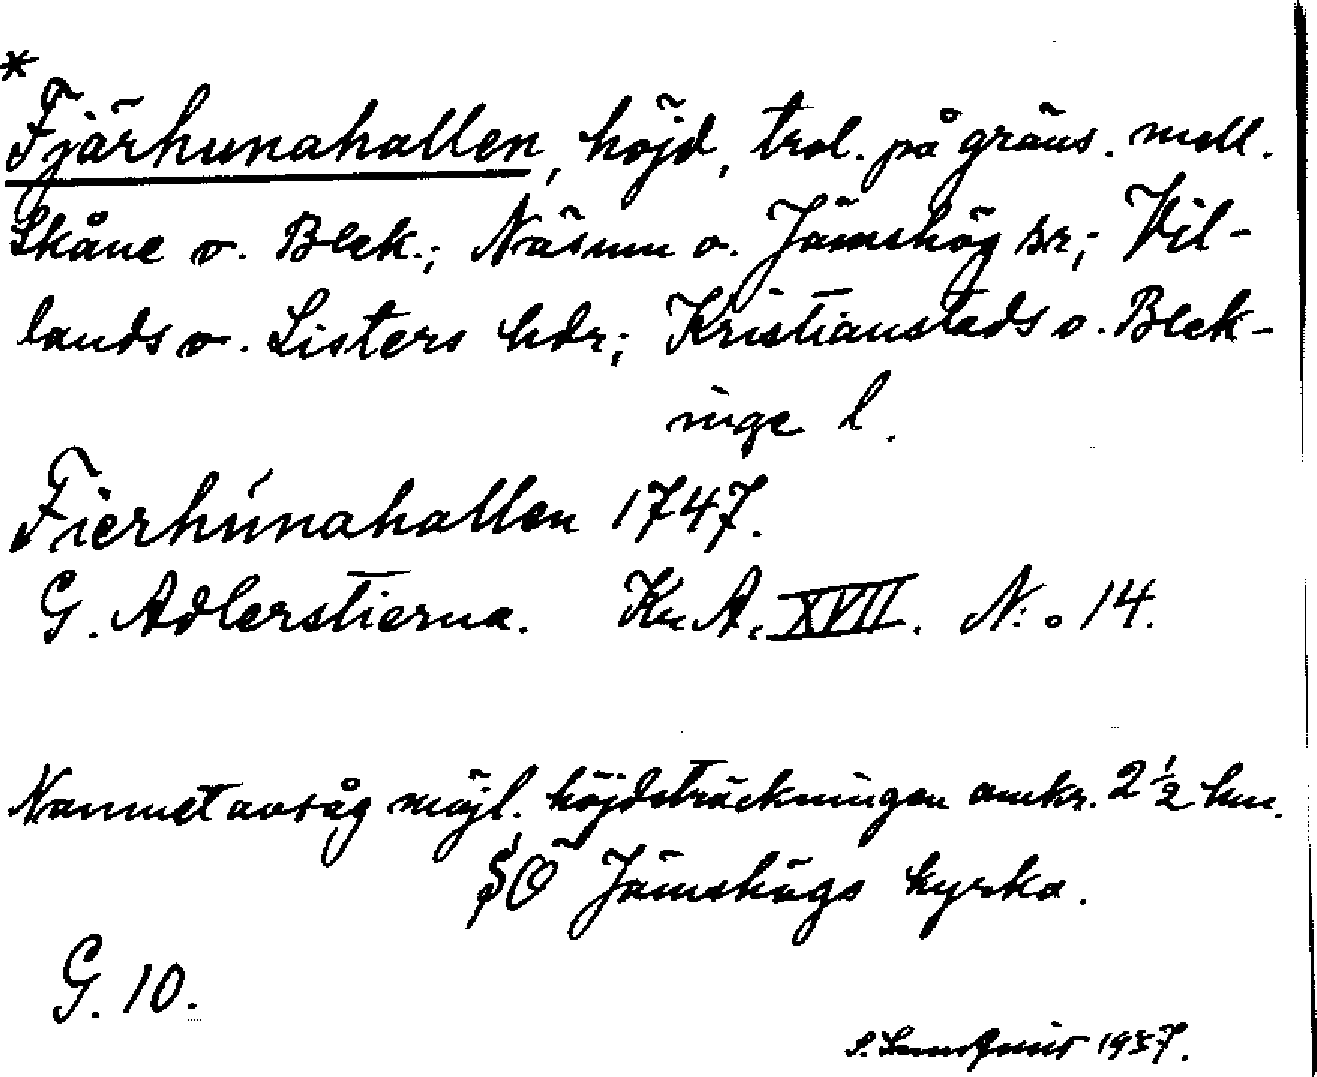 *
Fjärhunahallen, höjd, trol. på gräns. mell.
Skåne o. Blek.; Näsum o. Jämshög sr; Vil-
lands o. Listers hdr; Kristianstads o. Blek-
inge l.
Fierhúnahallen 1747.
G. Adlerstierna. Kr. A. XVII. N:o 14.
Namnet avsåg möjl. höjdsträckningen omkr. 2 ½ km.
SÖ Jämshögs kyrka.
G. 10.
1937.